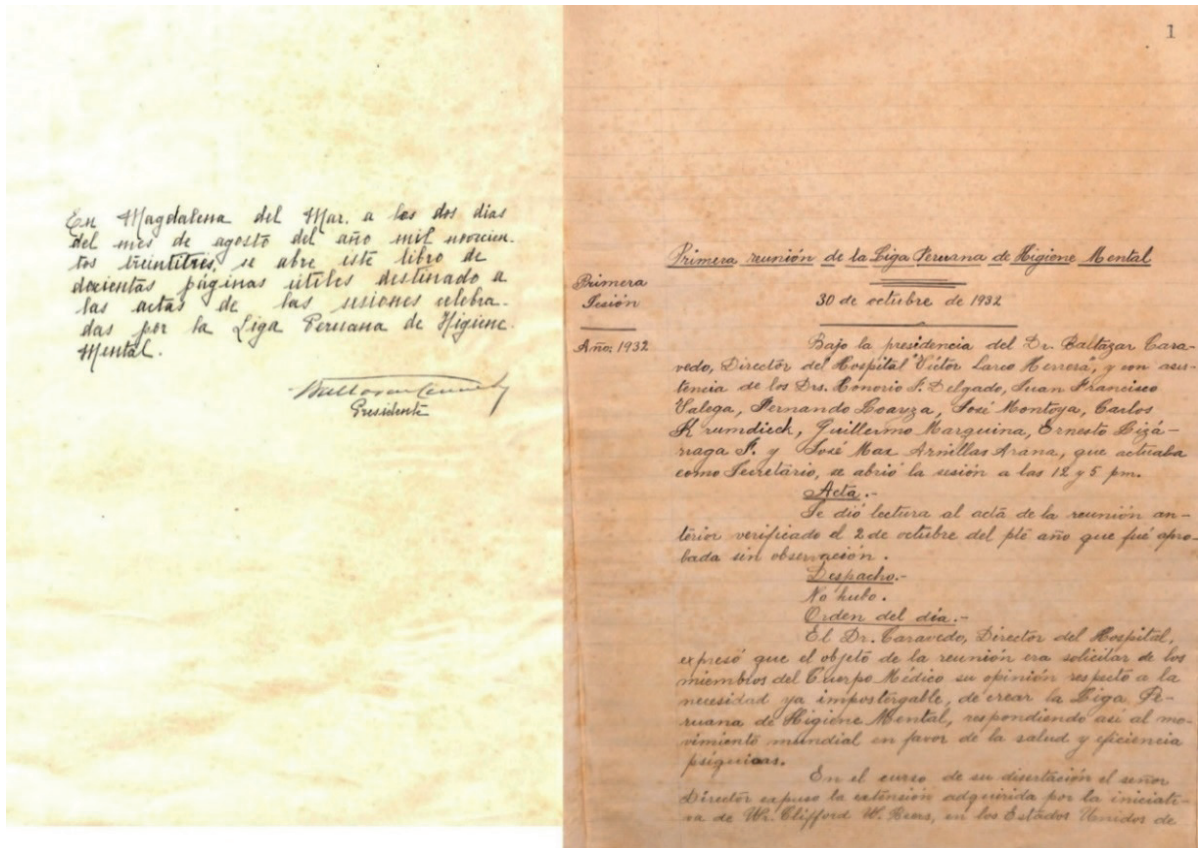 En Magdalena del Mar. a los dos dias
del mes de agosto del año mil novecien-
tos treintitres, se abre este libro de
docientas páginas útiles destinado a
las actas de las sesiones celebra-
das por la Liga Peruana de Higiene
Mental.
Presidente
1
Primera reunión de la Liga Peruana de Higiene Mental
Primera
Sesión
30 de octubre de 1932
Año, 1932
Bajo la presidencia del Dr. Baltazar Cara-
vedo, Director del Hospital "Víctor Larco Herrera", y con asis-
tencia de los Drs. Honorio F. Delgado, Juan Francisco
Valega, Fernando Loayza, José Montoya, Carlos
Krumdieck, Guillermo Marquina, Ernesto Lizá-
rraga F. y José Max Arnillas Arana, que actuaba
como Secretario, se abrió la sesión a las 12 y 5 pm.
Acta.-
Se dió lectura al acta de la reunión an-
terior verificado el 2 de octubre del pte año que fué apro-
bada sin observación.
Despacho.-
No hubo.
Orden del día.-
El Dr. Caravedo, Director del Hospital,
expresó que el objeto de la reunión era solicitar de los
miembros del Cuerpo Médico su opinión respeto a la
necesidad ya impostergable, de crear la Liga Pe-
ruana de Higiene Mental, respondiendo así al mo-
vimiento mundial en favor de la salud y eficiencia
psíquicas.
En el curso de su disertación el señor
Director expuso la extensión adquirida por la iniciati-
va de Wr. Clifford W. Beers, en los Estados Unidos de